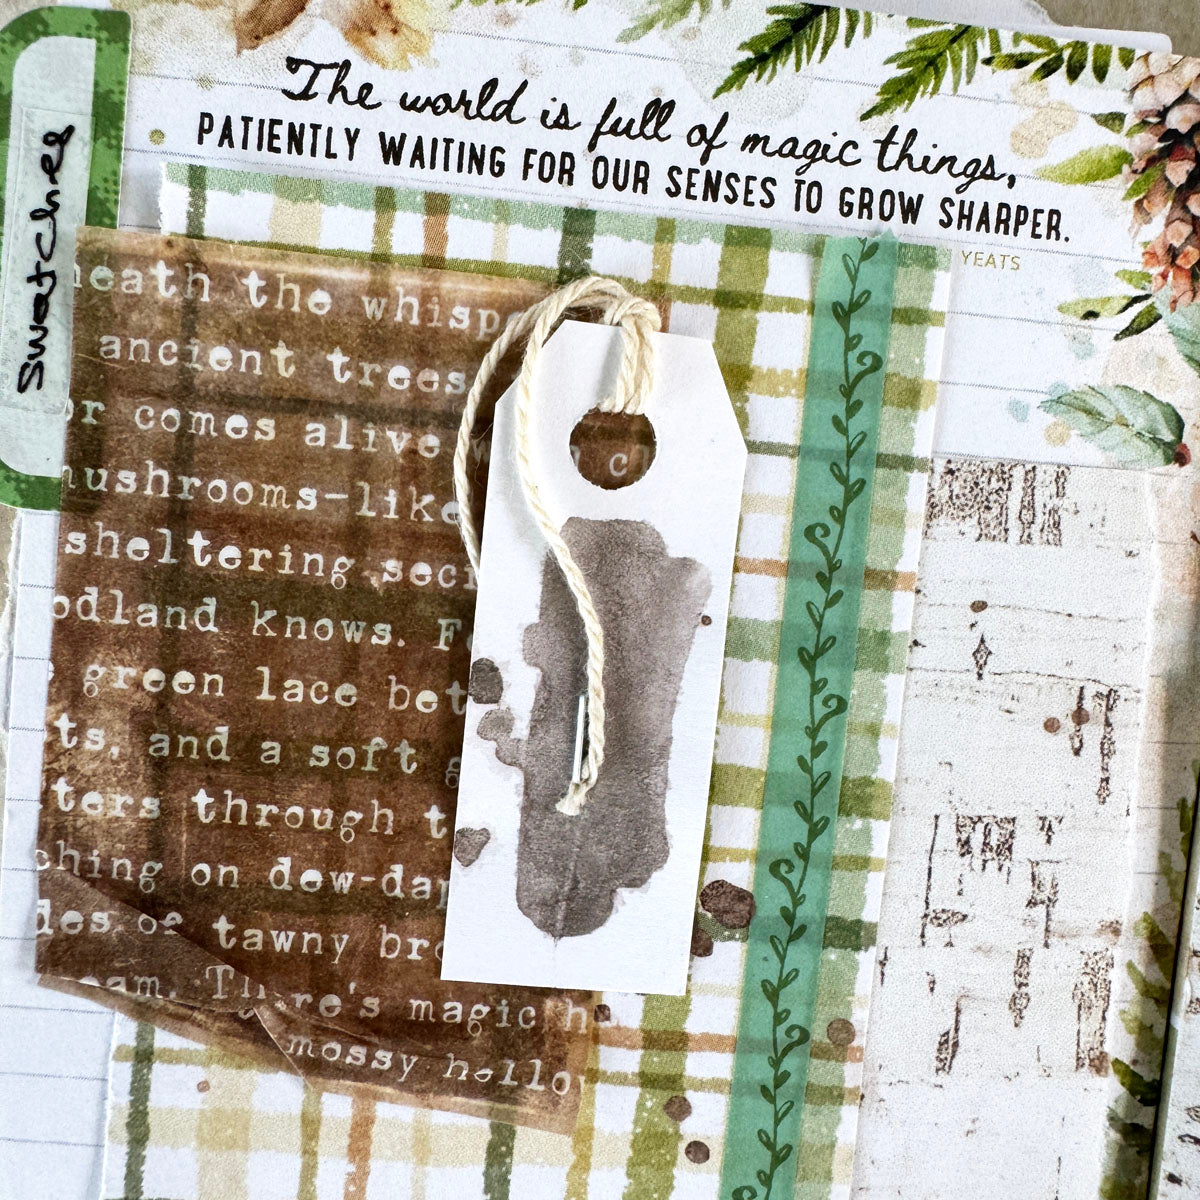 The world is full of magic things,
PATIENTLY WAITING FOR OUR SENSES TO GROW SHARPER.
YEATS
swatches
neath the whisp
ancient trees
r comes alive
mushrooms-like
sheltering sec
odland knows. F
green lace bet
ts, and a soft g
ters through t
ching on dew-dap
des of tawny br
eam. There's magic h
mossy hollo